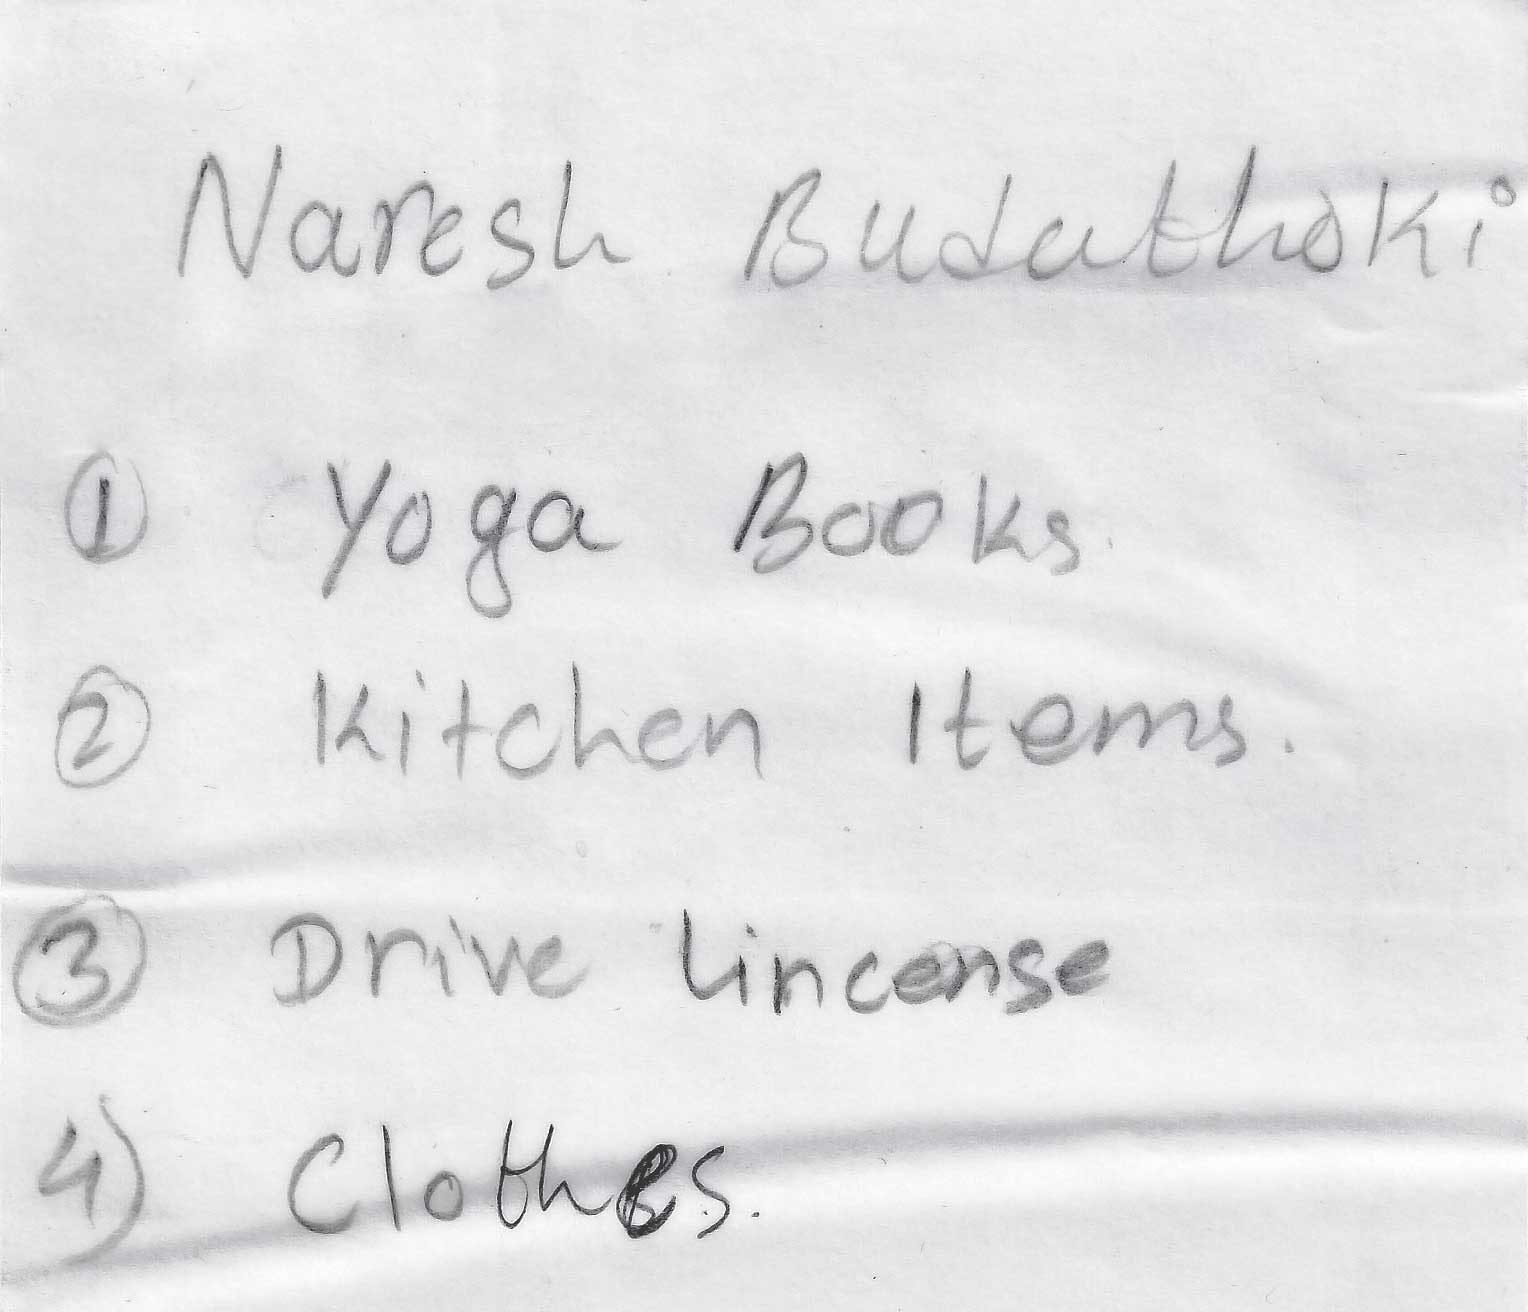 Naresh Budathoki
① Yoga Books.
② Kitchen Items.
③ Drive Lincense
4) Clothes.